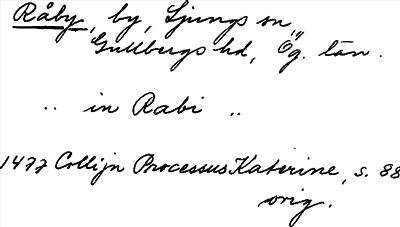 Råby, by, Ljungs sn,
Gullbergs hd, Ög. län.
.. in Rabi ..
1477 Collijn Processus Katerine, s. 88
orig.